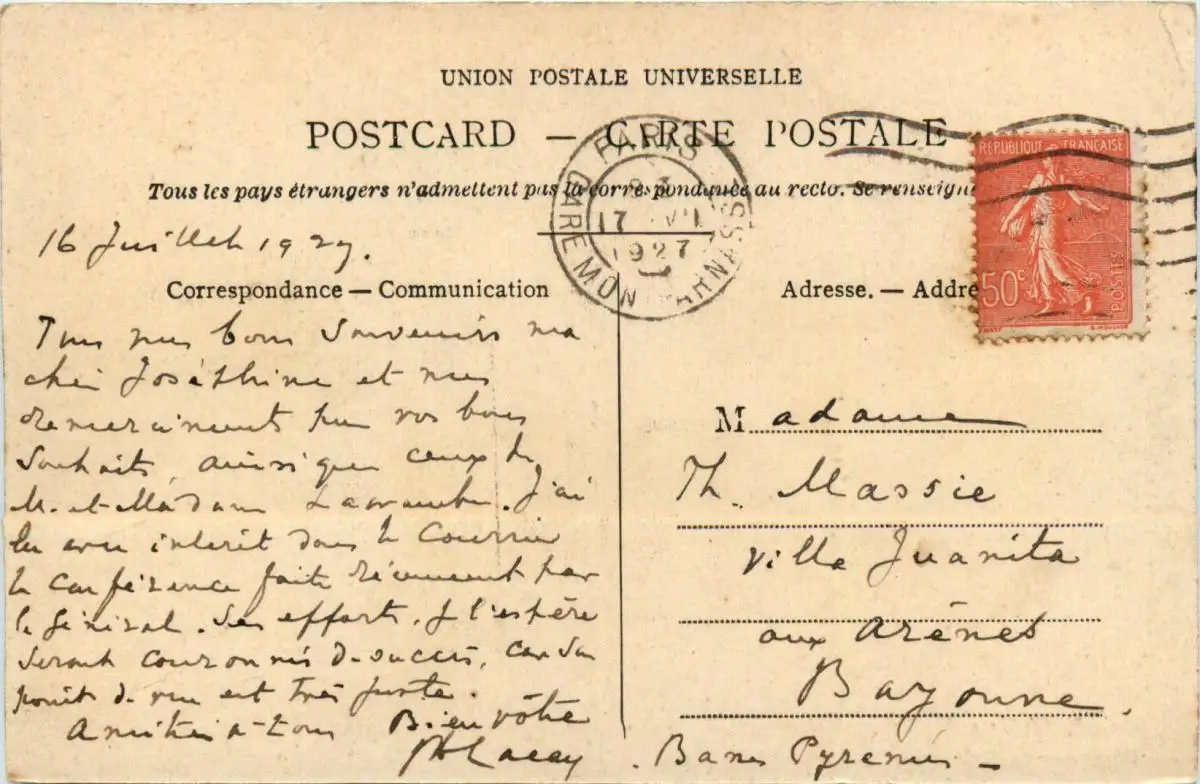 UNION POSTALE UNIVERSELLE
POSTCARD — CARTE POSTALE
Tous les pays étrangers n'admettent pas la correspondance au recto. Se renseign
PARIS
GARE MONTPARNASSE
17 VII
1927
REPUBLIQUE FRANÇAISE
50c
POSTES
16 Juillet 1927.
Correspondance — Communication
Tous mes bons souvenirs ma
chère Joséphine et mes
remerciments pour vos bons
souhaits, ainsi que ceux de
M. et Madame J'ai
lu avec intérêt dans le Courrier
la conférence faite récemment par
le Général. Ses efforts, je l'espère
seront couronnés de succès, car son
point de vue est très juste.
Amitiés à tous Bien vôtre
Adresse. — Addre
Madame
Th. Massie
Villa Juanita
aux Arènes
Bayonne.
Basses Pyrénées